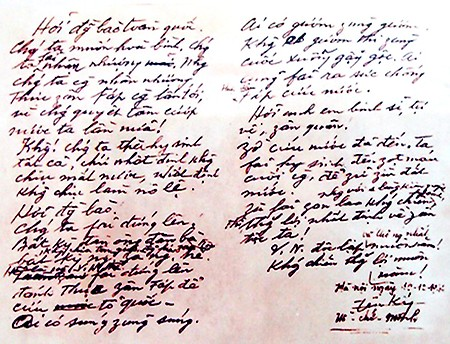 Hỡi đg bào toàn quốc
Chg ta muốn hoà bình, chg
ta fải nhân nhượng. Nhg
chg ta cg nhân nhượng,
thực zân Fáp cg lấn tới,
vì chg quyết tâm cướp
nước ta lần nữa!
Khg! chg ta thà hy sinh
tất cả, chứ nhất định khg
chịu mất nước, nhất định
khg chịu làm nô lệ.
Hỡi đg bào!
Chg ta fải đứng lên!
Bất kỳ đàn ông, đàn bà
bất kỳ người già, người trẻ
fải đứng lên
đánh thực zân Fáp để
cứu tổ quốc.
Ai có súng zùng súng.
Ai có gươm zùng gươm.
Khg có gươm thì zùng
cuốc xuổng gậy gộc. Ai
cũng fải ra sức chống
Fáp cứu nước.
Hỡi anh em binh sĩ, tự
vệ, zân quân!
Giờ cứu nước đã đến. Ta
fải hy sinh đến zọt máu
cuối cg, để giữ gìn đất
nước.
Zù fải zan lao khg chiến
thắng lợi nhất định về zân
tộc ta!
V.N. độc lập muôn năm!
Khg chiến thg lợi muôn
năm!
Hà nội ngày 19-12-46
Hồ-chí-Minh